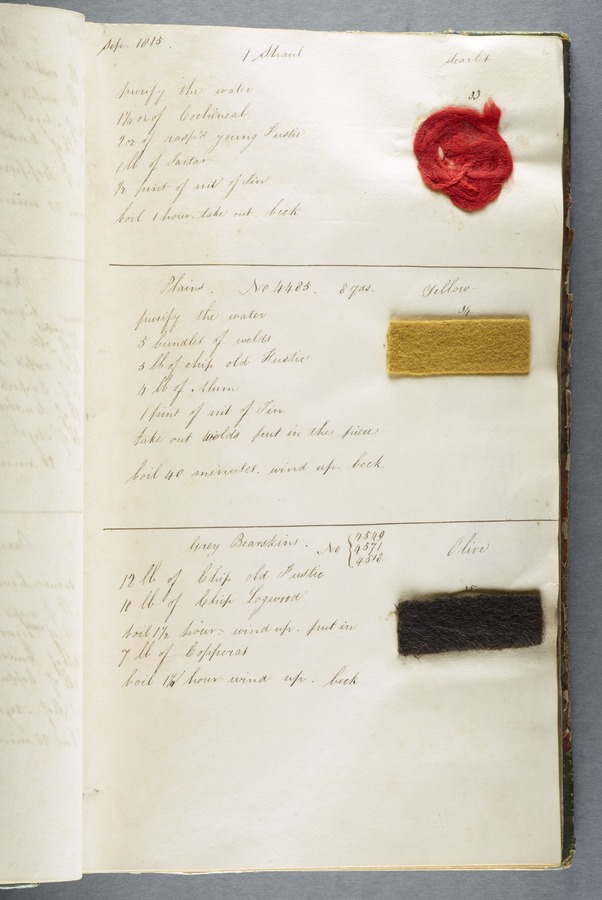 Sep. 1815.
1 Strand Scarlet
33
purify the water
1¼ oz of Cochineal
2 oz of rasp'd young Fustic
1 lb of Tartar
½ pint of nit of Tin
boil 1 hour. take out. beck
Plains. No 4485. 8 yds. Yellow
34
purify the water
5 bundles of welds
5 lb of chip old Fustic
4 lb of Alum
1 pint of nit of Tin
take out welds put in the piece
boil 40 minutes. wind up. beck.
Grey Bearskins. No 4549 Olive
4571
12 lb of Chip old Fustic
10 lb of Chip Logwood
boil 1½ hour wind up. put in
7 lb of Copperas
boil 1¼ hour wind up. beck